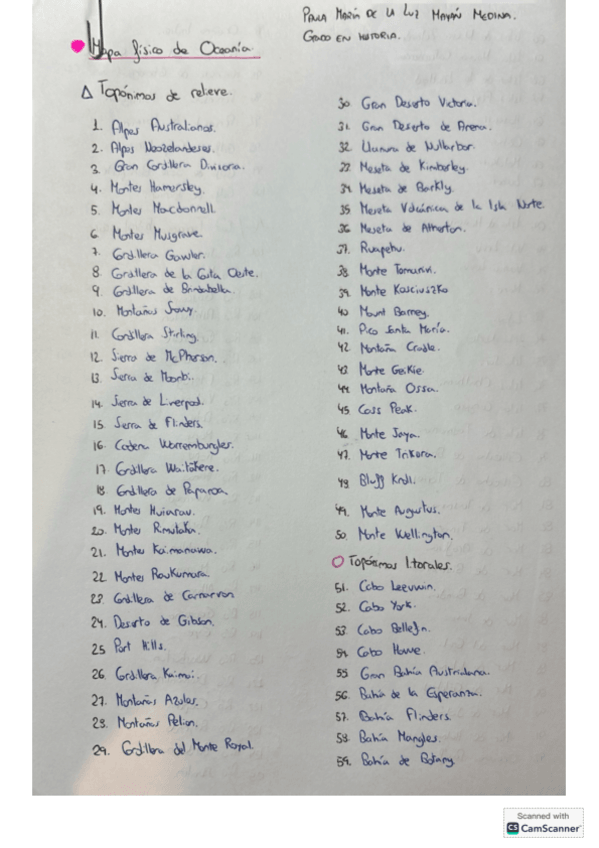 Paula María de la Luz Mayán Medina.
Grado en Historia.
Mapa físico de Oceanía
Δ Topónimos de relieve.
1. Alpes Australianos.
2. Alpes Neozelandeses.
3. Gran Cordillera Divisoria.
4. Montes Hamersley.
5. Montes Macdonnell.
6. Montes Musgrave.
7. Cordillera Gawler.
8. Cordillera de la Costa Oeste.
9. Cordillera de Brindabella.
10. Montañas Snowy.
11. Cordillera Stirling.
12. Sierra de McPherson.
13. Sierra de Moonbi.
14. Sierra de Liverpool.
15. Sierra de Flinders.
16. Cadena Warrembungles.
17. Cordillera Waitakere.
18. Cordillera de Paparoa.
19. Montes Huiarau.
20. Montes Rimutaka.
21. Montes Kaimanawa.
22. Montes Raukumara.
23. Cordillera de Carnarvon
24. Desierto de Gibson.
25 Port Hills.
26. Cordillera Kaimai.
27. Montañas Azules.
28. Montañas Pelion.
29. Cordillera del Monte Royal.
30. Gran Desierto Victoria.
31. Gran Desierto de Arena.
32. Llanura de Nullarbor.
33 Meseta de Kimberley.
34 Meseta de Barkly.
35 Meseta Volcánica de la Isla Norte
36 Meseta de Atherton.
37. Ruapehu.
38 Monte Tamariri.
39. Monte Kosciuszko
40 Mount Barney.
41. Pico Santa María.
42 Montaña Cradle.
43 Monte Geikie.
44 Montaña Ossa.
45 Coss Peak.
46 Monte Jaya.
47. Monte Trikora.
48 Bluff Knoll.
49. Monte Augustus.
50. Monte Wellington.
Topónimos litorales.
51. Cabo Leeuwin.
52. Cabo York.
53. Cabo
54. Cabo Howe.
55 Gran Bahía Australiana.
56. Bahía de la Esperanza.
57. Bahía Flinders.
58. Bahía Mangles.
59. Bahía de Botany
Scanned with
CS CamScanner